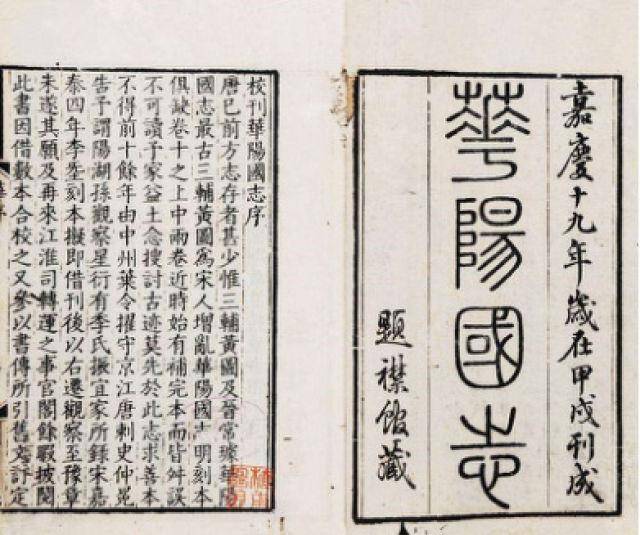 嘉慶十九年歲在甲戌刊成
華陽國志
題襟館藏
校刊華陽國志序
唐已前方志存者甚少惟三輔黃圖及晉常璩華陽
國志最古三輔黃圖爲宋人增亂華陽國志明刻本
俱缺卷十之上中兩卷近時始有補完本而皆舛誤
不可讀予家益土念搜討古迹莫先於此志求善本
不得前十餘年由中州萊令擢守京江唐刺史仲冕
告予謂陽湖孫觀察星衍有李氏振宜家所錄宋嘉
泰四年李𡌴刻本擬即借刊後以右遷觀察至豫章
未遂其願及再來江淮司轉運之事官閣餘暇披閱
此書因借數本合校之又參以書傳所引舊文評定